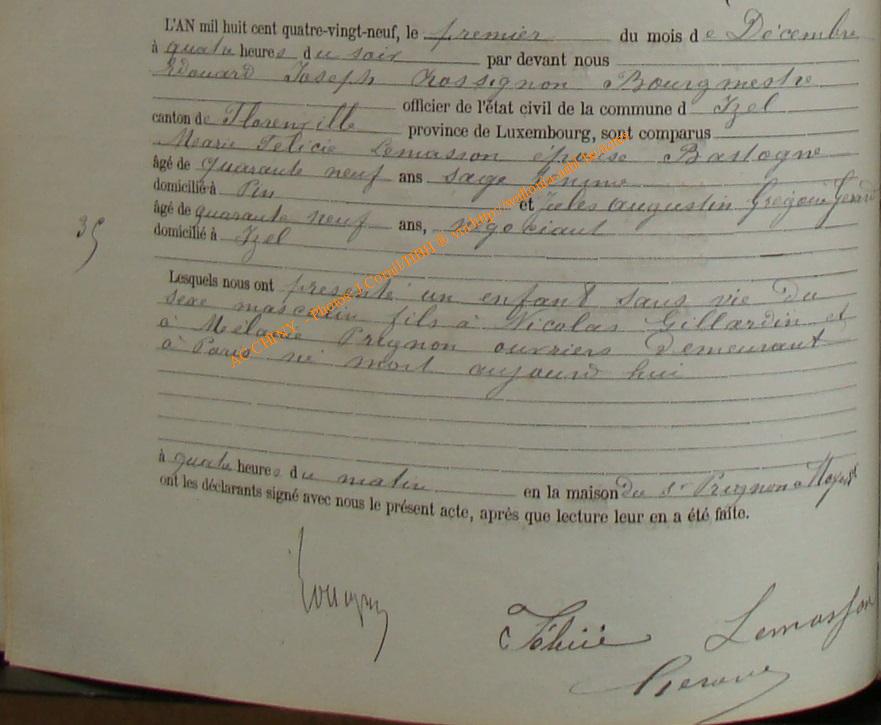 L'AN mil huit cent quatre-vingt-neuf, le premier du mois de Décembre
à quatre heures du soir par devant nous
Edouard Joseph Rossignon Bourgmestre
officier de l'état civil de la commune d Izel
canton de Florenville province de Luxembourg, sont comparus
Marie Félicie Lemasson épouse Bastogne
âgé de quarante neuf ans sage femme
domicilié à Pin et Jules Augustin Grégoire Gerard
âgé de quarante neuf ans, négociant
domicilié à Izel
35
Lesquels nous ont présenté un enfant sans vie du
sexe masculin fils à Nicolas Gillardin et
à Mélanie Prignon ouvriers demeurant
à Paris né mort aujourd hui
à quatre heures du matin en la maison du sr Prignon
ont les déclarants signé avec nous le présent acte, après que lecture leur en a été faite.
Félicie Lemasson
AC CHINY - Photos J.Cornil HBH ® via http://